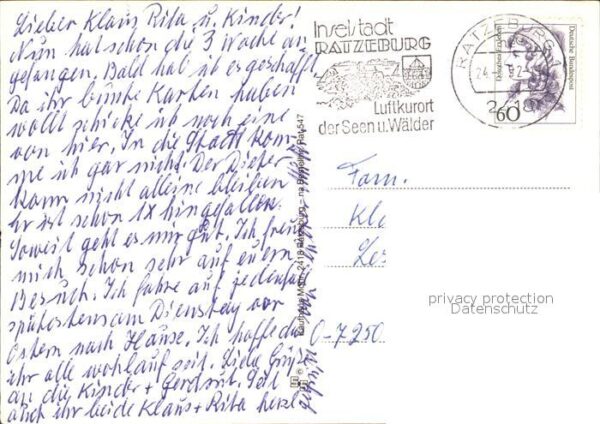 Lieber Klaus Rita u. Kinder!
Nun hat schon die 3 Woche an
gefangen. Bald hab ich es geschafft
Da ihr bunte Karten haben
wollt schicke ich noch eine
von hier. In die Stadt kom-
me ich gar nicht. Der Dieter
kann nicht alleine bleiben
Er ist schon 1x hingefallen.
Soweit geht es mir gut. Ich freu
mich schon sehr auf euern
Besuch. Ich fahre auf jedenfall
spätestens am Dienstag vor
Ostern nach Hause. Ich hoffe das
ihr alle wohlauf seit. Liebe Grüße
an die Kinder + Gerdsrit. Seit
auch ihr beide Klaus + Rita herzl
Inselstadt
RATZEBURG
Luftkurort
der Seen u. Wälder
RATZEBURG 1
24.
2418
Deutsche Bundespost
60
Fam.
Kla
Les
O-7250
privacy protection
Datenschutz